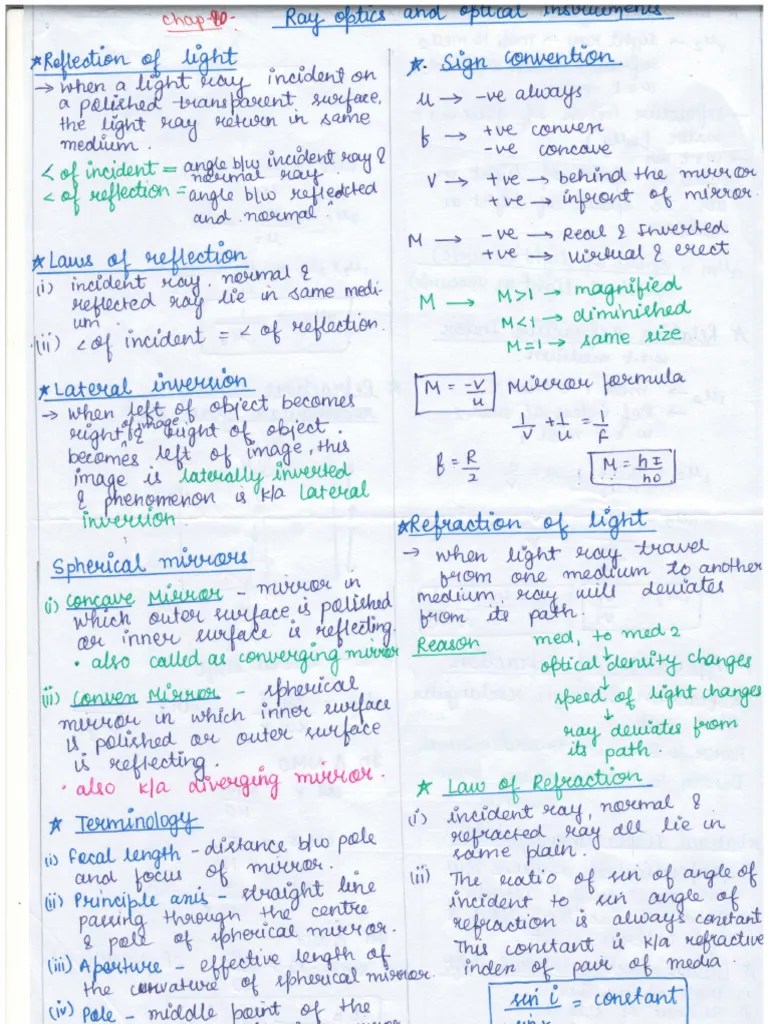 Chap-10- Ray optics and optical instruments
★Reflection of light
→ when a light ray incident on
a polished transparent surface,
the light ray return in same
medium.
< of incident = angle b/w incident ray &
normal ray.
< of reflection = angle b/w reflected
and normal.
★Laws of reflection
(i) incident ray, normal &
reflected ray lie in same medi-
um.
(ii) < of incident = < of reflection.
★Lateral inversion
→ when left of object becomes
right of image & right of object.
becomes left of image, this
image is laterally inverted
& phenomenon is k/a Lateral
inversion
Spherical mirrors
(i) Concave Mirror - mirror in
which outer surface is polished
or inner surface is reflecting.
• also called as converging mirror
(ii) Convex Mirror - spherical
mirror in which inner surface
is polished or outer surface
is reflecting.
• also k/a diverging mirror.
★ Terminology
(i) Focal length - distance b/w pole
and focus of mirror.
(ii) Principle axis - straight line
passing through the centre
& pole of spherical mirror.
(iii) Aperture - effective length of
the curvature of spherical mirror.
(iv) Pole - middle point of the
★. Sign convention
u → -ve always
f → +ve convex
-ve concave
v → +ve → behind the mirror
+ve → infront of mirror.
M → -ve → Real & Inverted
+ve → virtual & erect
M → M>1 → magnified
M<1 → diminished
M=1 → same size
M = -v/u Mirror formula
1/v + 1/u = 1/f
f = R/2
M = hI/ho
★Refraction of light
→ when light ray travel
from one medium to another
medium, ray will deviates
from its path.
Reason med, to med 2
↓
optical density changes
↓
speed of light changes
↓
ray deviates from
its path.
★ Law of Refraction
(i) incident ray, normal &
refracted ray all lie in
same plain.
(ii) The ratio of sin of angle of
incident to sin angle of
refraction is always constant
This constant is k/a refractive
index of pair of media.
sin i = constant